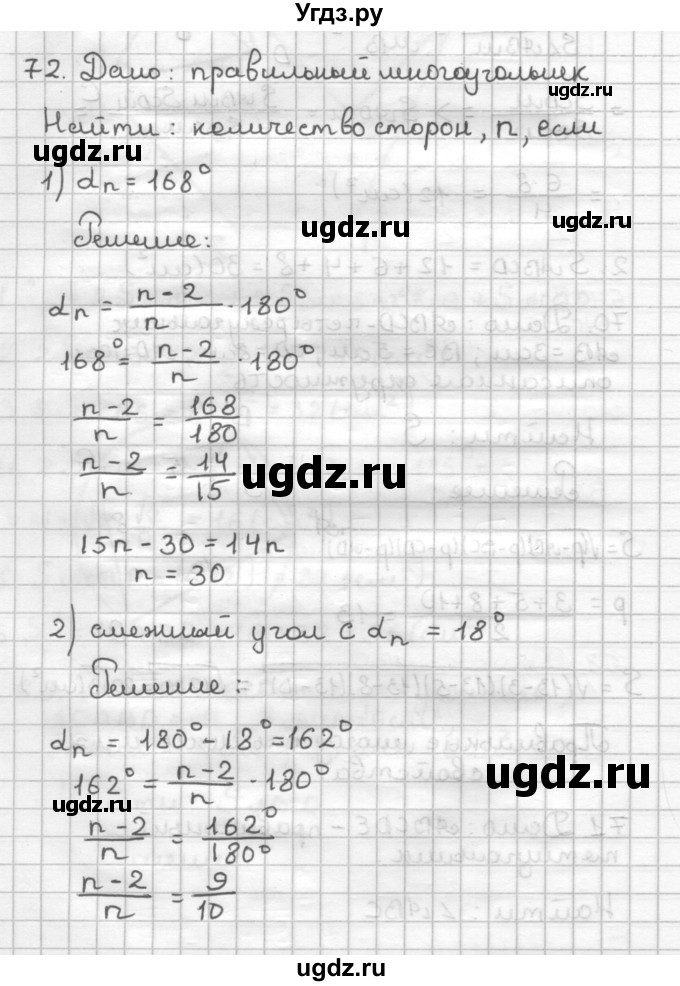 Угдз.ру
72. Дано: правильный многоугольник
ugdz.ru
Найти: количество сторон, n, если
ugdz.ru
1) αn = 168°
ugdz.ru
Решение:
αn = (n-2)/n · 180°
168° = (n-2)/n · 180°
(n-2)/n = 168/180
(n-2)/n = 14/15
ugdz.ru
15n - 30 = 14n
n = 30
2) смежный угол с αn = 18°
Решение:
αn = 180° - 18° = 162°
162° = (n-2)/n · 180°
ugdz.ru
ugdz.ru
(n-2)/n = 162°/180°
(n-2)/n = 9/10
ugdz.ru